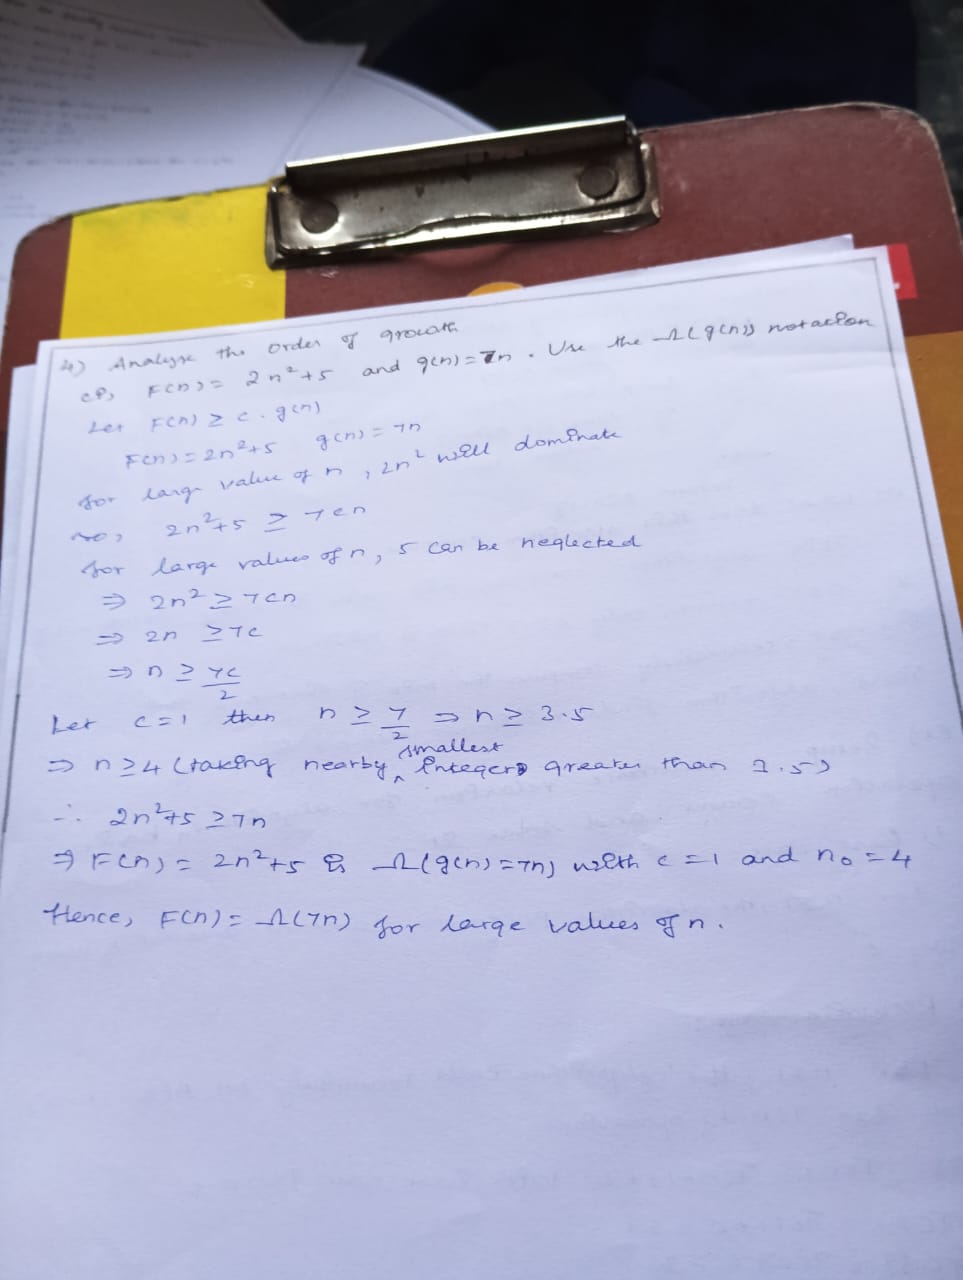 4) Analyse the order of growth
F(n) = 2n²+5 and g(n) = 7n. Use the Ω(g(n)) notation
Let F(n) ≥ c.g(n)
F(n) = 2n²+5 g(n) = 7n
for large value of n, 2n² will dominate
2n²+5 ≥ 7cn
for large values of n, 5 can be neglected
⇒ 2n² ≥ 7cn
⇒ 2n ≥ 7c
⇒ n ≥ 7c/2
Let c=1 then n ≥ 7/2 ⇒ n ≥ 3.5
⇒ n≥4 (taking nearby smallest integer greater than 3.5)
∴ 2n²+5 ≥ 7n
⇒ F(n) = 2n²+5 is Ω(g(n) = 7n) with c=1 and n₀=4
Hence, F(n) = Ω(7n) for large values of n.